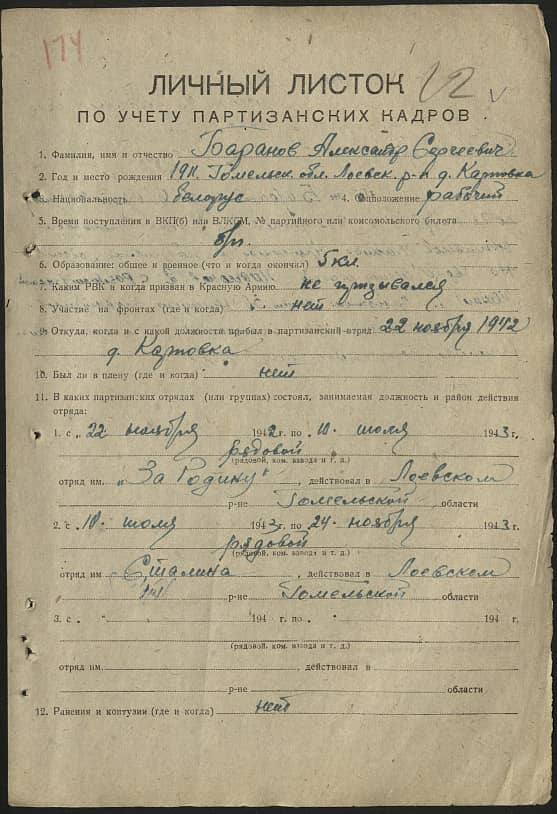 174
ЛИЧНЫЙ ЛИСТОК
ПО УЧЕТУ ПАРТИЗАНСКИХ КАДРОВ
1. Фамилия, имя и отчество Баранов Александр Сергеевич
2. Год и место рождения 1911. Гомельск. обл. Лоевск. р-н д. Карповка
3. Национальность белорус 4. Соцположение рабочий
5. Время поступления в ВКП(б) или ВЛКСМ, № партийного или комсомольского билета
б/п.
6. Образование: общее и военное (что и когда окончил) 5 кл.
7. Каким РВК и когда призван в Красную Армию не призывался
8. Участие на фронтах (где и когда) нет
9. Откуда, когда и с какой должности прибыл в партизанский отряд 22 ноября 1942
д. Карповка
10. Был ли в плену (где и когда) нет
11. В каких партизанских отрядах (или группах) состоял, занимаемая должность и район действия
отряда:
1. с „22 ноября 1942 г. по „10. июля 1943 г.
рядовой
(рядовой, ком. взвода и т. д.)
отряд им. „За Родину“, действовал в Лоевском
р-не Гомельской области
2. с „10. июля 1943 г. по „24. ноября 1943 г.
рядовой
(рядовой, ком. взвода и т. д.)
отряд им Сталина, действовал в Лоевском
р-не Гомельской области
3. с „ “ 194 г. по „ “ 194 г.
(рядовой, ком. взвода и т. д.)
отряд им. , действовал в
р-не области
12. Ранения и контузии (где и когда) нет